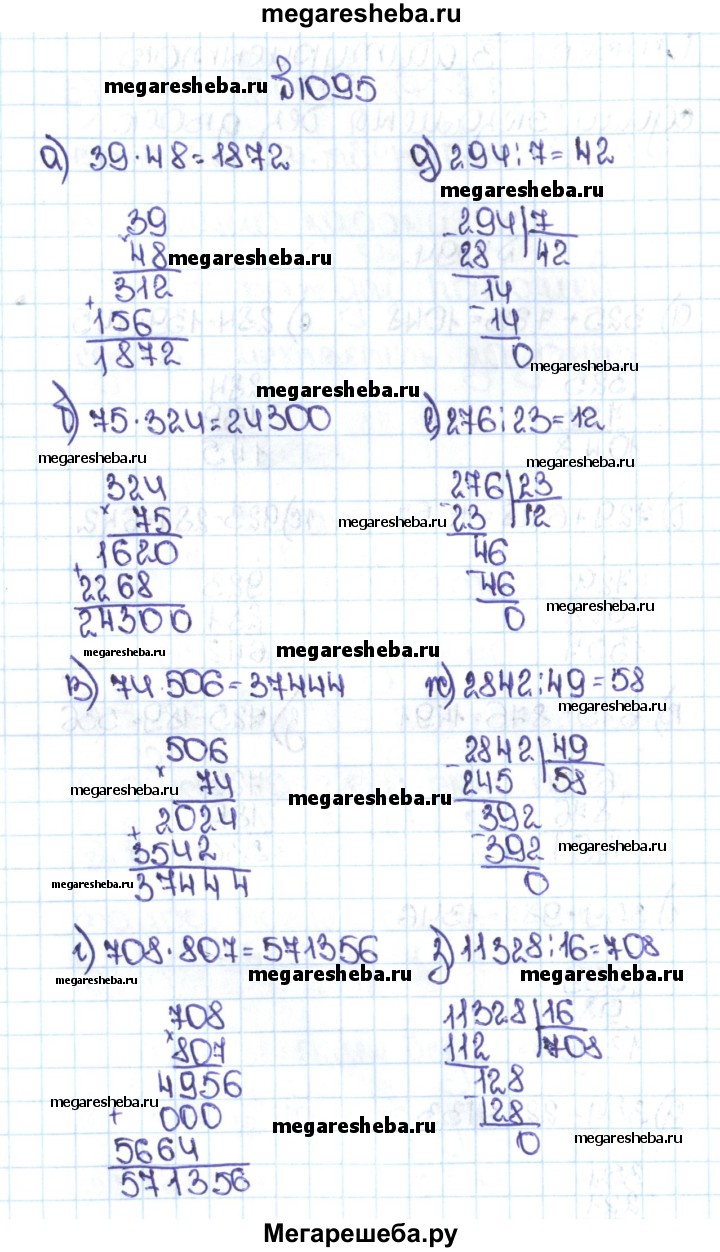 megaresheba.ru
megaresheba.ru №1095
а) 39·48=1872
39
× 48
megaresheba.ru
312
+
156
1872
д) 294:7=42
megaresheba.ru
- 294 7
28 42
14
- 14
0
megaresheba.ru
megaresheba.ru
б) 75·324=24300
megaresheba.ru
324
× 75
megaresheba.ru
1620
+
2268
24300
megaresheba.ru
е) 276:23=12
megaresheba.ru
- 276 23
23 12
46
- 46
0
megaresheba.ru
megaresheba.ru
в) 74·506=37444
506
× 74
megaresheba.ru
megaresheba.ru
2024
+
3542
37444
megaresheba.ru
ж) 2842:49=58
megaresheba.ru
- 2842 49
245 58
392
- 392
0
megaresheba.ru
г) 708·807=571356
megaresheba.ru
megaresheba.ru
708
× 807
4956
megaresheba.ru
+ 000
megaresheba.ru
5664
571356
з) 11328:16=708
megaresheba.ru
11328 16
112 708
128
- 128
0
megaresheba.ru
Мегарешеба.ру